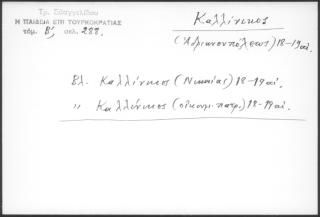 Τρ. Εὐαγγελίδου
Η ΠΑΙΔΕΙΑ ΕΠΙ ΤΟΥΡΚΟΚΡΑΤΙΑΣ
τόμ. Β', σελ. 288.
Καλλίνικος
(Ἀδριανουπόλεως) 18-19 αἰ.
Βλ. Καλλίνικος (Νικαίας) 18-19 αἰ.
" Καλλίνικος (οἰκουμ. πατρ.) 18-19 αἰ.